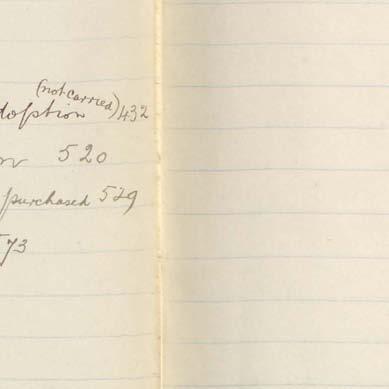 (not carried)
doption 432
520
purchased 529
73